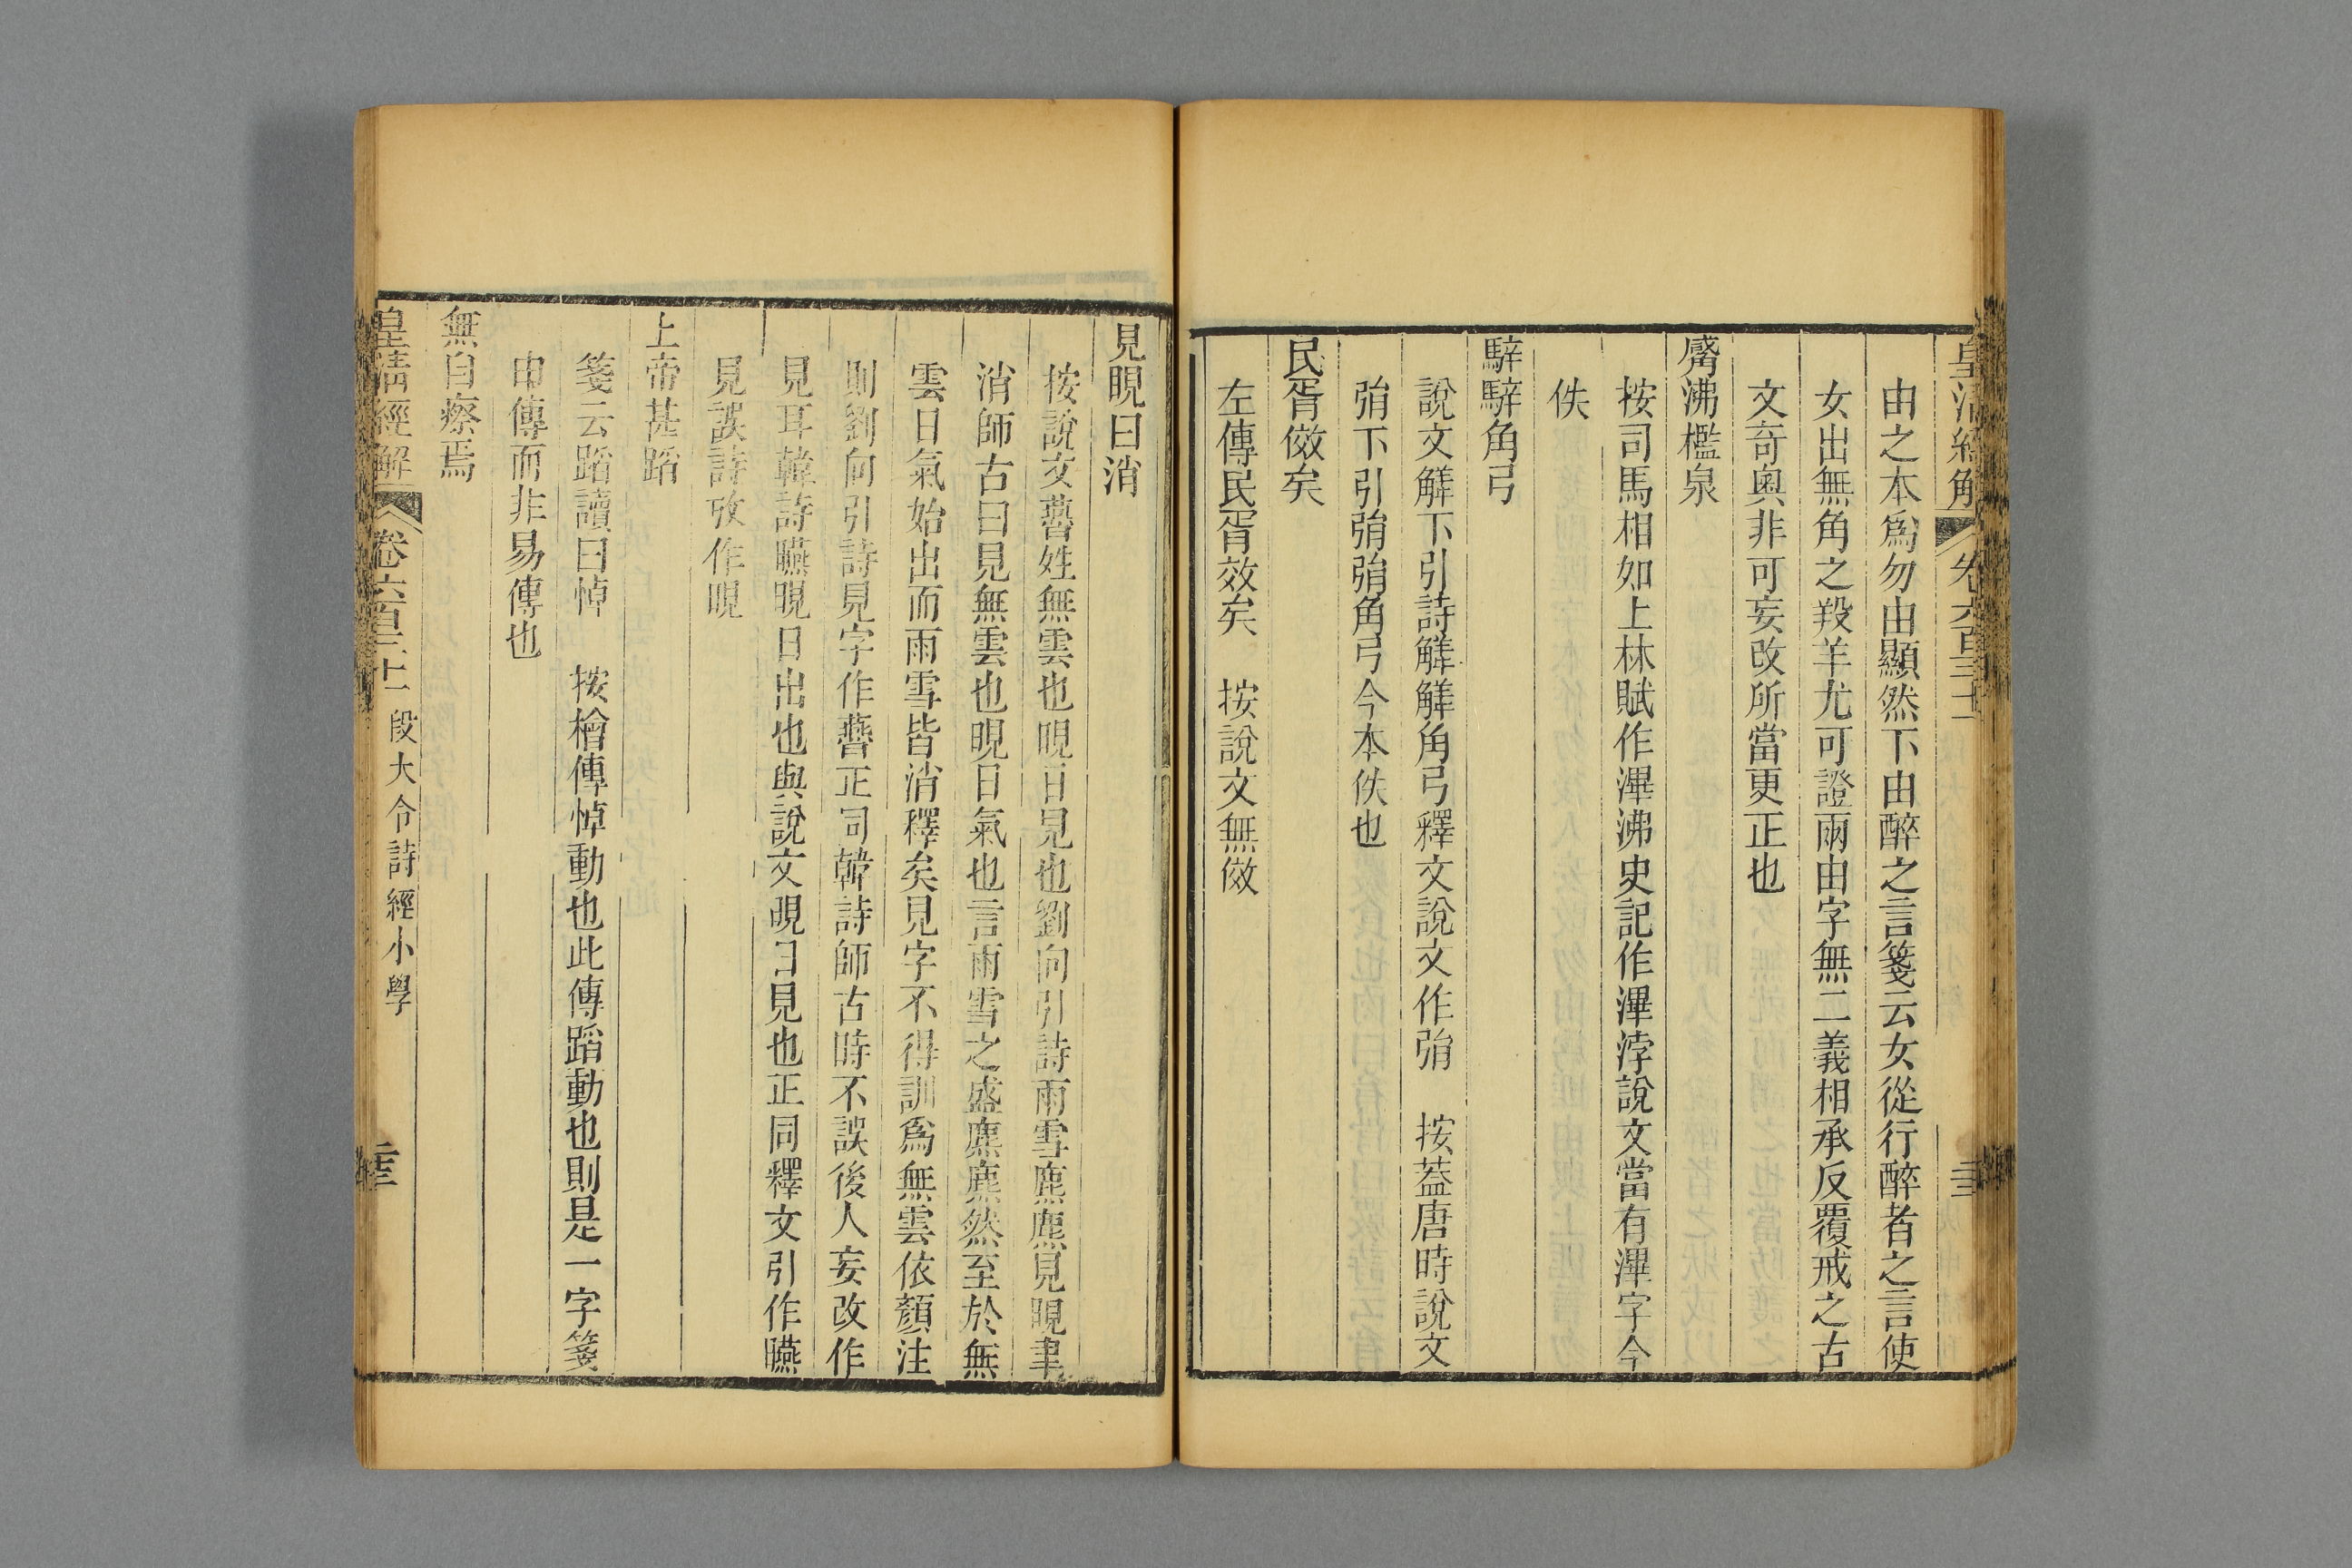 皇清經解 卷六百三十一
由之本爲勿由顯然下由醉之言箋云女從行醉者之言使
女出無角之羖羊尤可證兩由字無二義相承反覆戒之古
文奇奧非可妄改所當更正也
觱沸檻泉
按司馬相如上林賦作滭沸史記作滭浡說文當有滭字今
佚
騂騂角弓
說文觲下引詩觲觲角弓釋文說文作弲　按葢唐時說文
弲下引弲弲角弓今本佚也
民胥傚矣
左傳民胥效矣　按說文無傚
見晛曰消
按說文䁙姓無雲也晛日見也劉向引詩雨雪麃麃見晛聿
消師古曰見無雲也晛日氣也言雨雪之盛麃麃然至於無
雲日氣始出而雨雪皆消釋矣見字不得訓爲無雲依顏注
則劉向引詩見字作䁙正同韓詩師古時不誤後人妄改作
見耳韓詩曣晛日出也與說文晛日見也正同釋文引作曣
見誤詩攷作晛
上帝甚蹈
箋云蹈讀曰悼　按檜傳悼動也此傳蹈動也則是一字箋
申傳而非易傳也
無自瘵焉
皇清經解 卷六百三十一 段大令詩經小學